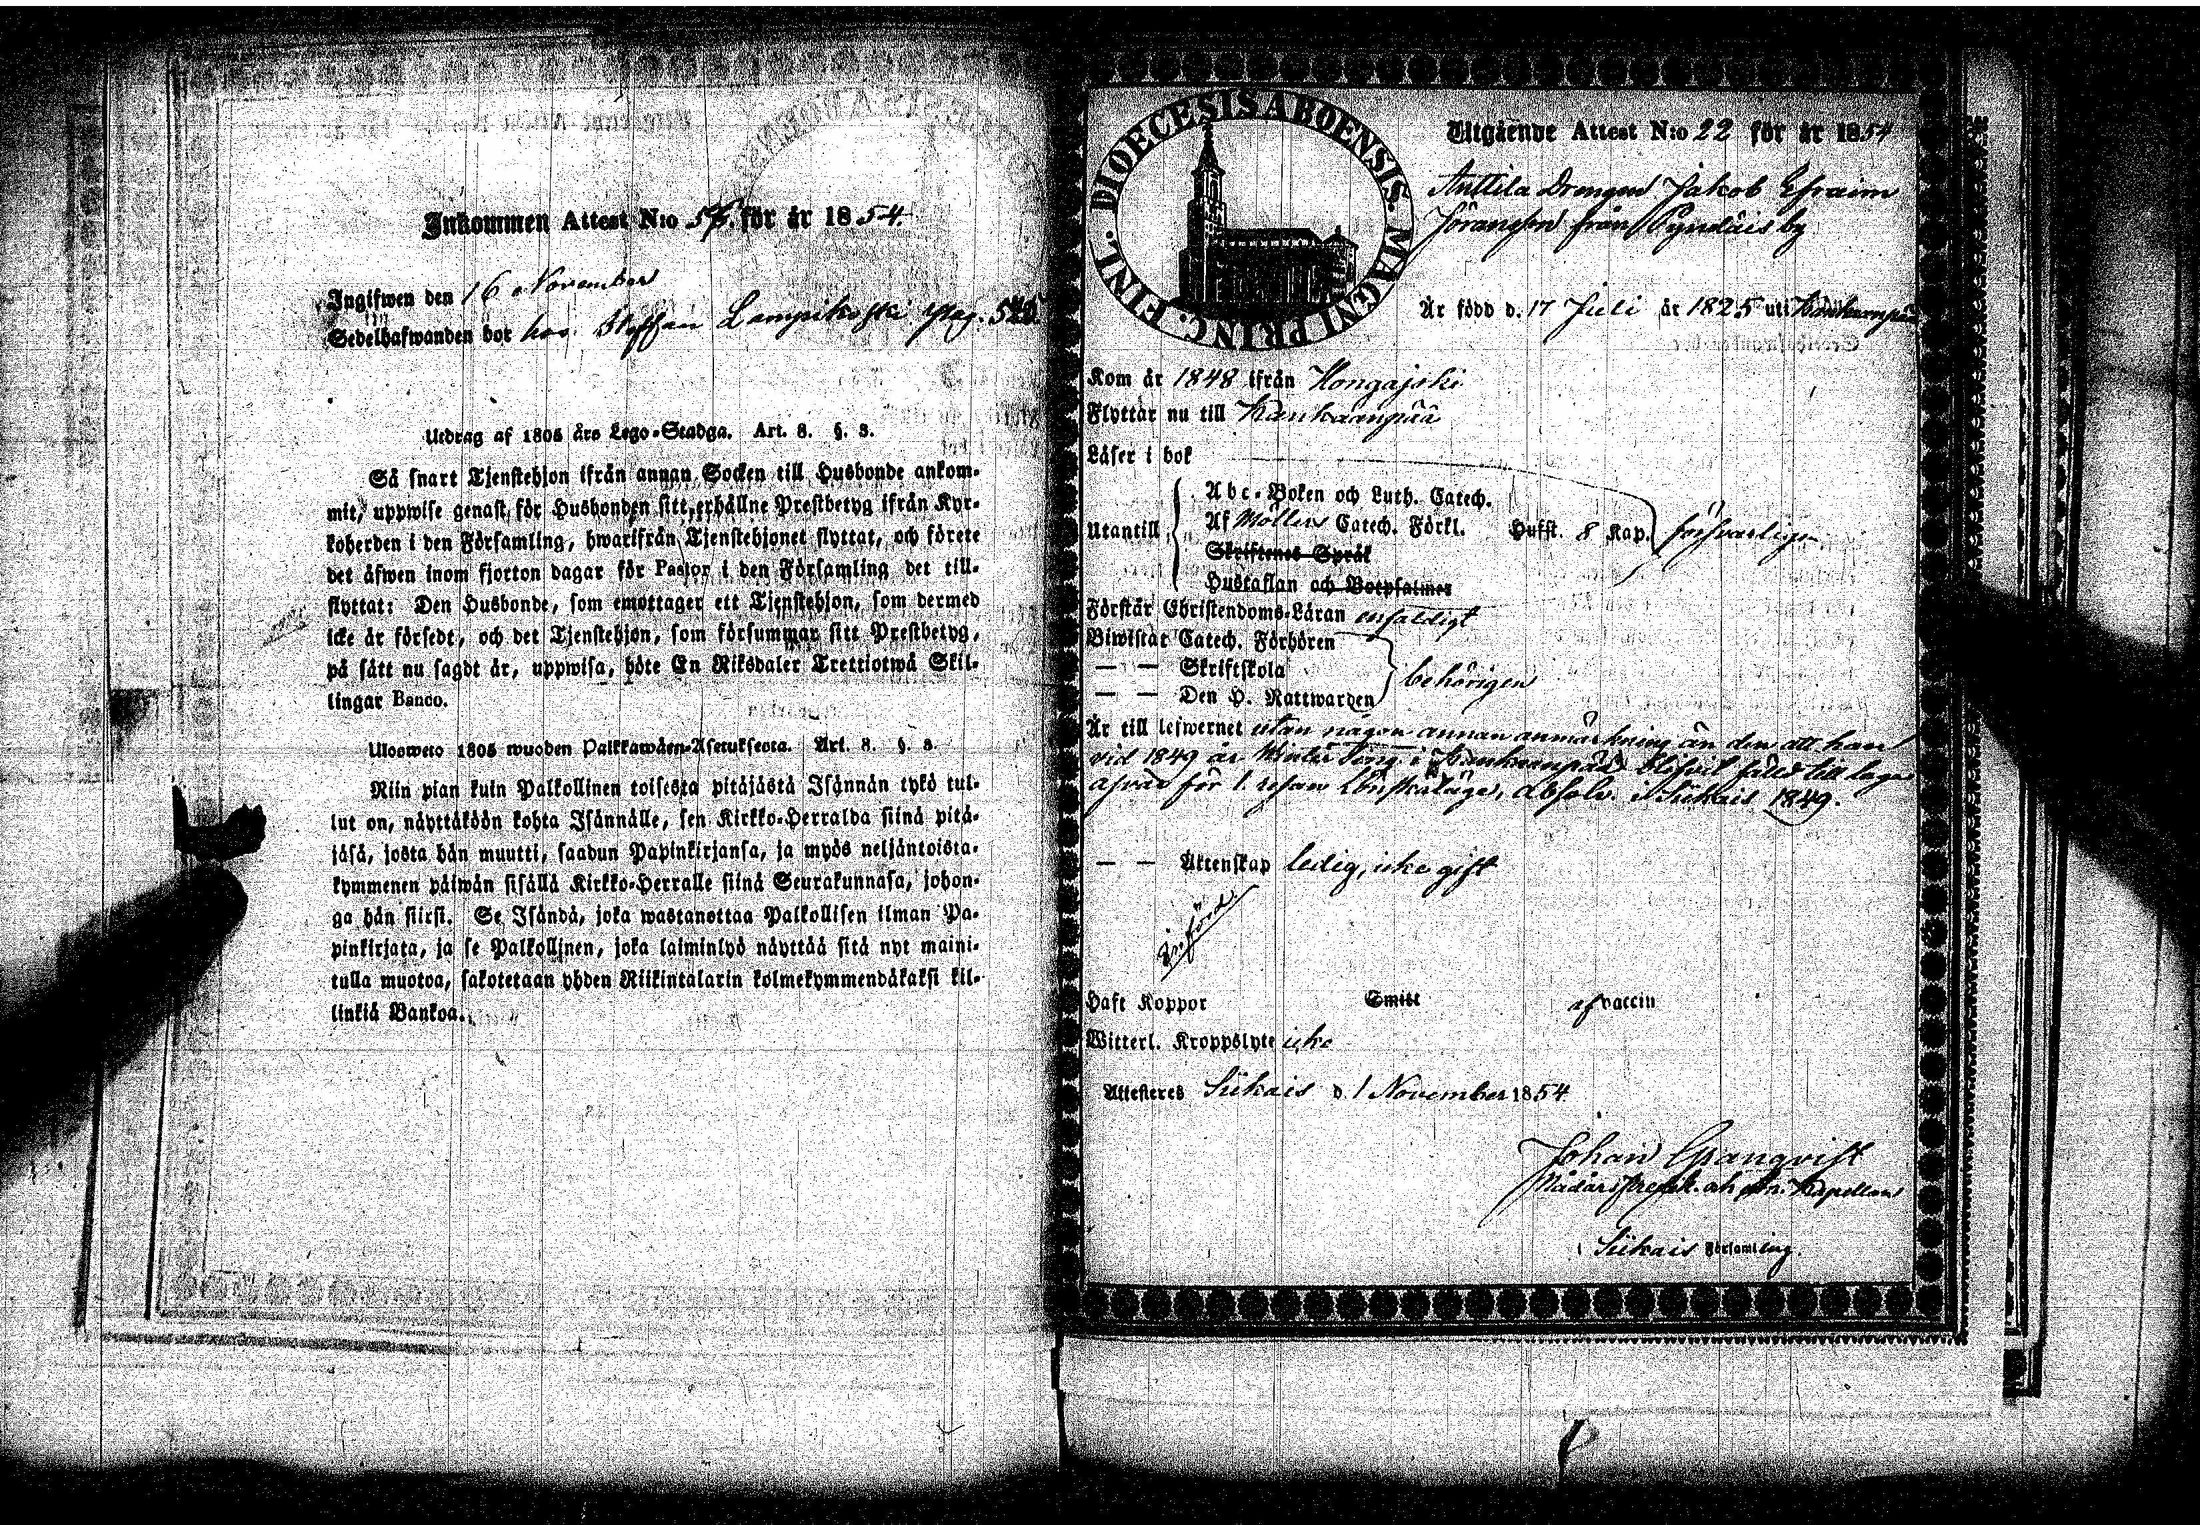 Inkommen Attest N:o för år 1854.
Ingifwen den 16 November
Sedelhafwanden bor hos Staffan Lampikoski pag. 528.
Utdrag af 1805 års Lego-Stadga. Art. 8. §. 3.
Så snart Tjenstehjon ifrån annan Socken till Husbonde ankom-
mit, uppwise genast för Husbonden sitt erhållne Prestbetyg ifrån Kyr-
koherden i den Församling, hwarifrån Tjenstehjonet flyttat, och förete
det äfwen inom fjorton dagar för Pastor i den Församling det till-
flyttat: Den Husbonde, som emottager ett Tjenstehjon, som dermed
icke är försedt, och det Tjenstehjon, som försummar sitt Prestbetyg,
på sätt nu sagdt är, uppwisa, böte En Riksdaler Trettiotwå Skil-
lingar Banco.
Ulosweto 1805 wuoden Palkkawäen-Asetuksesta. Art. 8. §. 3.
Niin pian kuin Palkollinen toisesta pitäjästä Isännän tykö tul-
lut on, näyttäköön kohta Isännälle, sen Kirkko-Herralda siinä pitä-
jäsä, josta hän muutti, saadun Papinkirjansa, ja myös neljäntoista-
kymmenen päiwän sisällä Kirkko-Herralle siinä Seurakunnasa, johon-
ga hän siirsi. Se Isändä, joka wastanottaa Palkollisen ilman Pa-
pinkirjata, ja se Palkollinen, joka laiminlyö näyttää sitä nyt maini-
tulla muotoa, sakotetaan yhden Riikintalarin kolmekymmendäkaksi kil-
lingiä Bankoa.
DIOECESIS ABOENSIS. MAGNI PRINC. FINL.
Utgående Attest N:o 22 för år 1854
Anttila Drengen Jakob Efraim
Göransson från Pyndäis by
Är född d. 17 Juli år 1825 uti Kankaanpää
Kom år 1848 ifrån Hongajoki
Flyttar nu till Kankaanpää
Läser i bok
Utantill
Abc-Boken och Luth. Catech.
Af Möllers Catech. Förkl. Hufst. 8 Kap. försvarligen
Skriftenes Språk
Hustaflan och Botpsalmer
Förstår Christendoms-Läran enfaldigt
Biwistat Catech. Förhören
— — Skriftskola behörigen
— — Den H. Nattwarden
Är till lefwernet utan någon annan anmärkning än den att han
vid 1849 år Winter Ting i Kankaanpää blifvit fälld till laga
answar för 1. resan Lönskaläge, absolv. i Siikais 1849.
— — Äktenskap ledig, icke gift
Införd
Haft Koppor Smitt af vaccin
Witterl. Kroppslyte icke
Attesteres Siikais d. 1 November 1854
Johan Granqvist
Kapellan
i Siikais Församling.